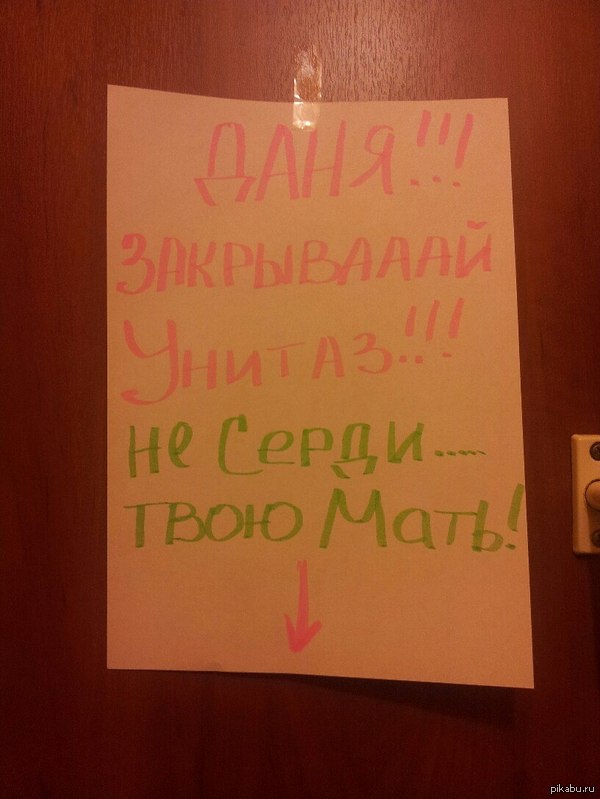 ДАНЯ!!!
ЗАКРЫВАААЙ
УНИТАЗ!!!
Не Серди.....
ТВОЮ Мать!
pikabu.ru